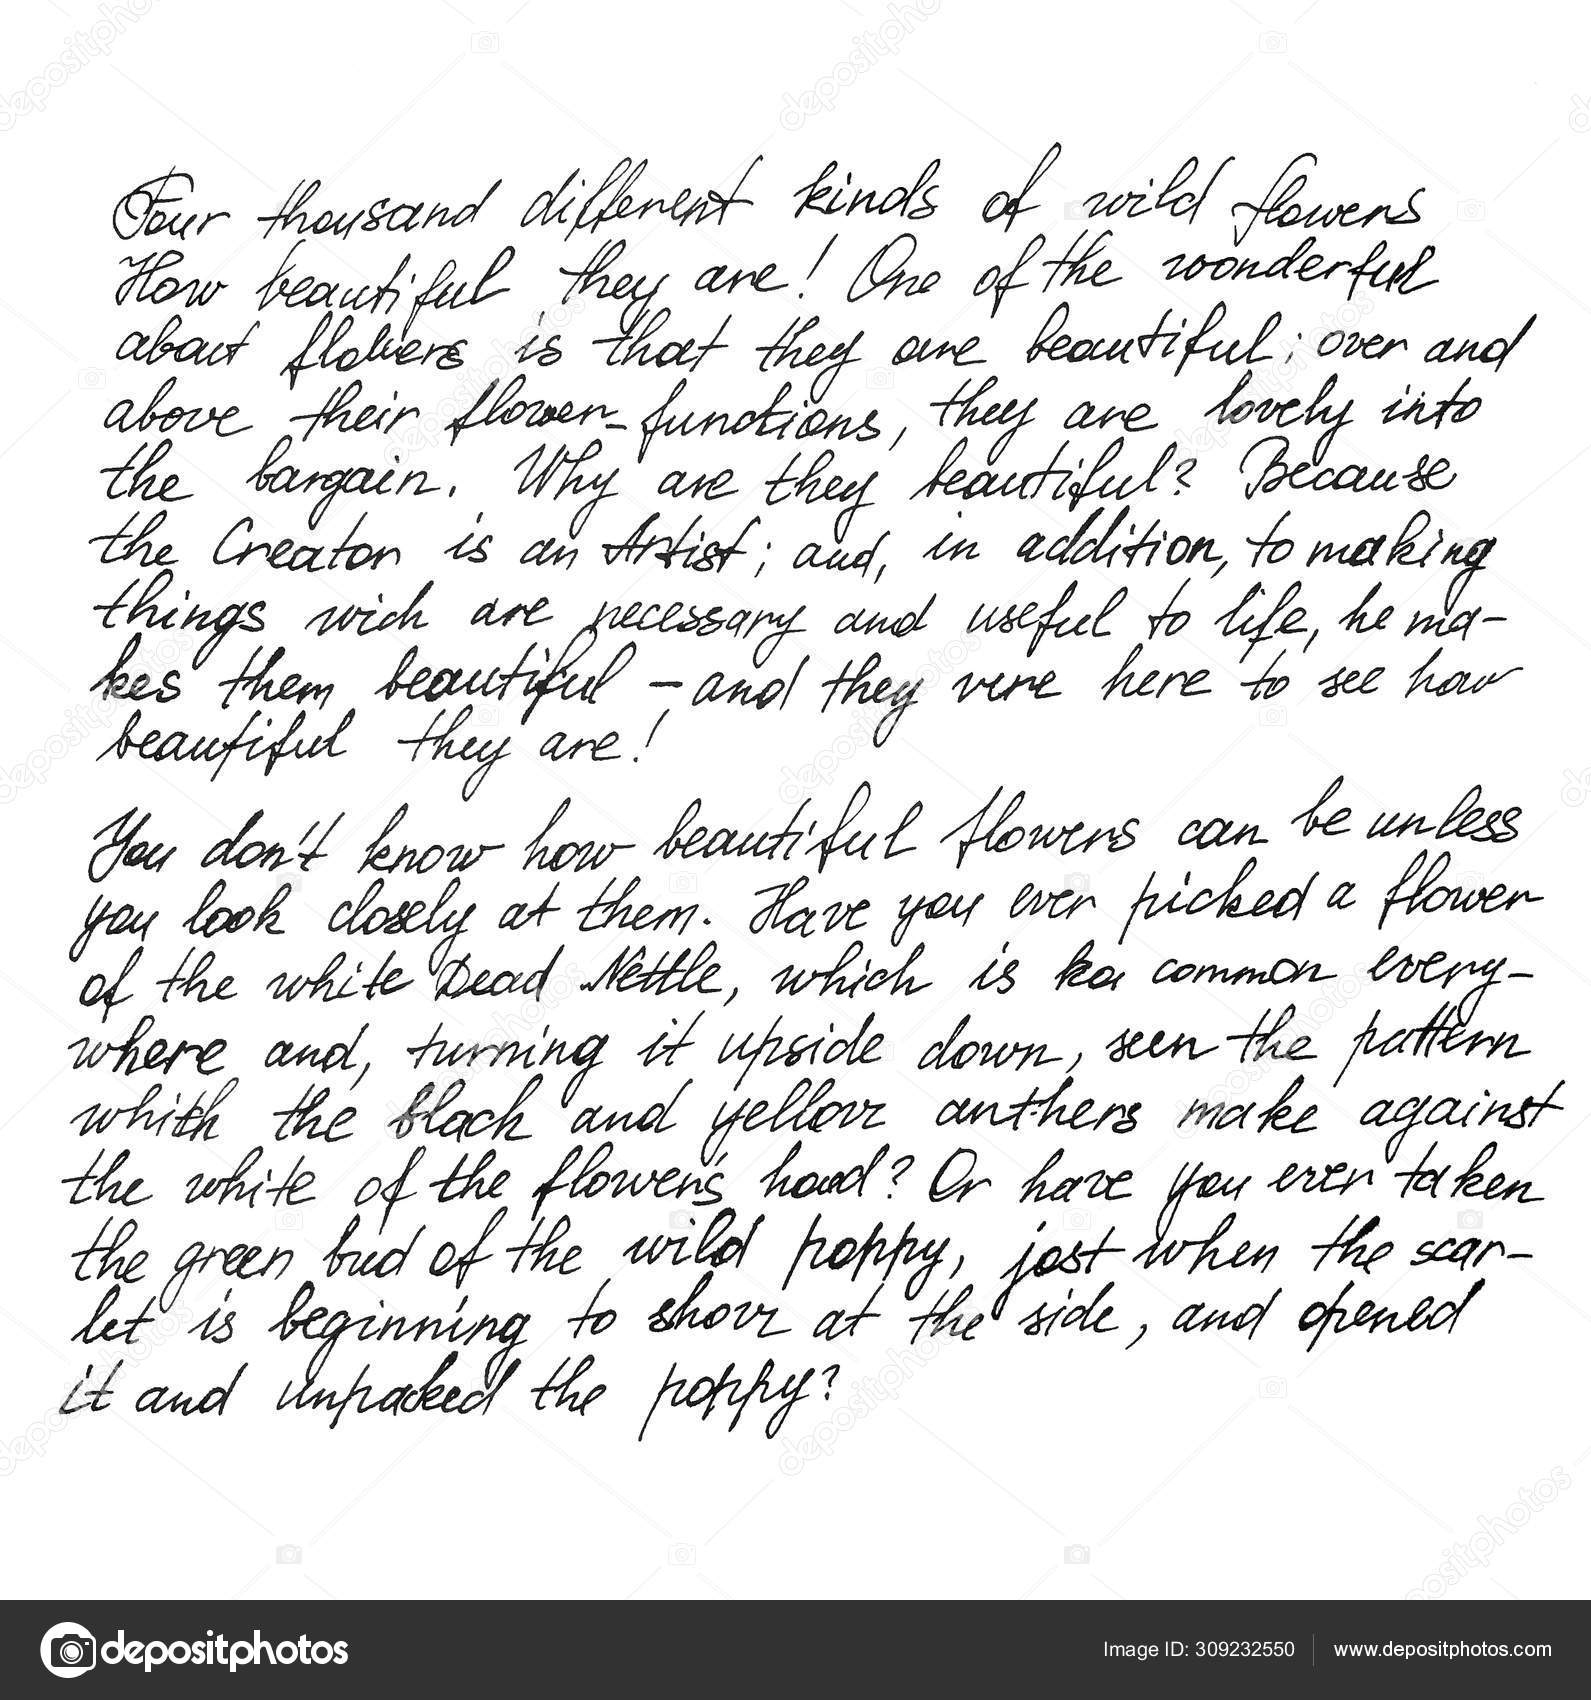 Four thousand different kinds of wild flowers
How beautiful they are! One of the wonderful
about flowers is that they are beautiful; over and
above their flower-functions, they are lovely into
the bargain. Why are they beautiful? Because
the Creator is an Artist; and, in addition, to making
things wich are necessary and useful to life, he ma-
kes them beautiful - and they vere here to see how
beautiful they are!
You don't know how beautiful flowers can be unless
you look closely at them. Have you ever picked a flower
of the white Dead Nettle, which is common every-
where and, turning it upside down, seen the pattern
whith the black and yellow anthers make against
the white of the flower's hood? Or have you ever taken
the green bud of the wild poppy, jost when the scar-
let is beginning to show at the side, and opened
it and unpacked the poppy?
depositphotos
Image ID: 309232550 www.depositphotos.com